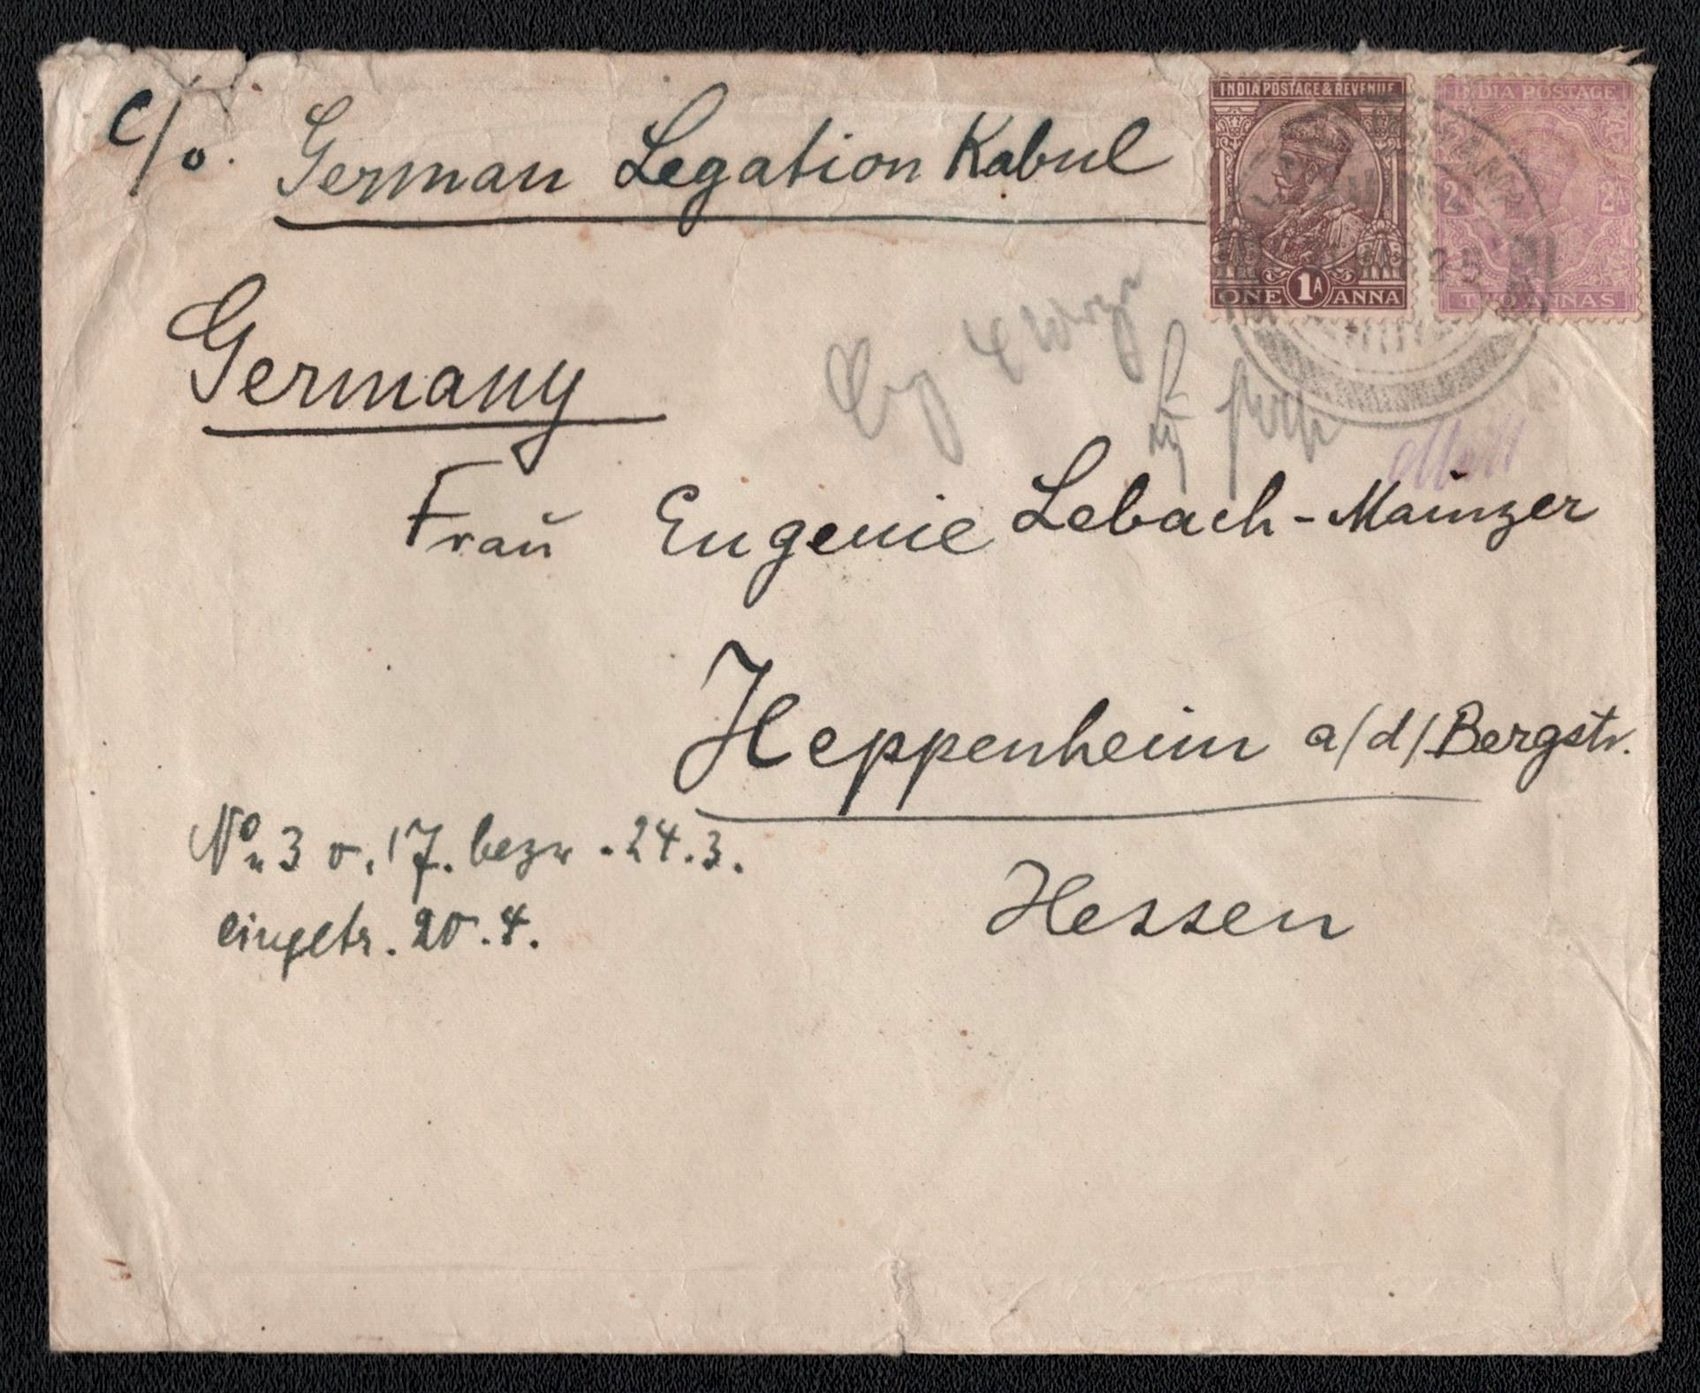 c/o. German Legation Kabul
INDIA POSTAGE & REVENUE
1A
ONE ANNA
INDIA POSTAGE
2A 2A
TWO ANNAS
25
Germany
Fraŭ Eugenie Lebach-Mainzer
Heppenheim a/d/Bergstr.
No 3 v. 17. bezw. 24.3.
eingetr. 20.4.
Hessen